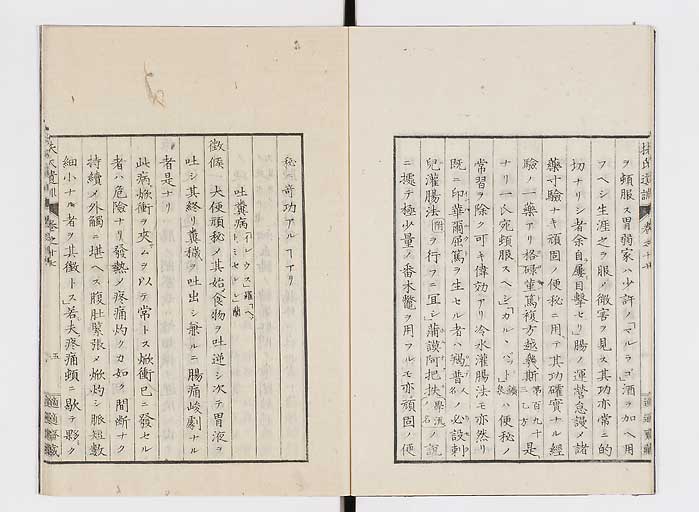 ヲ頓服ス胃弱家ハ少許ノ「マルラゴ」酒ヲ加ヘ用
フヘシ生涯之ヲ服メ微害ヲ見ス其功亦常ニ的
切ナリシ者余自屢目擊セリ」腸ノ運營怠慢メ諸
藥寸驗ナキ頑固ノ便秘ニ用テ其功確實ナル經
驗ノ一藥アリ格碌菫篤複方越幾斯 第百九十二乙方 是
ナリ一氏宛頓服スヘシ「カルヽバット」鑛泉ハ便秘ノ
常習ヲ除ク可キ偉効アリ冷水灌腸法モ亦然リ
既ニ印華爾屈篤ヲ生セル者ハ褐普人名必設刺
兒灌腸法 附 ヲ行フニ宜シ」蒲謨阿把扶學流ノ名ノ說
ニ據テ極少量ノ番木鼈ヲ用フルモ亦頑固ノ便
扶氏遺訓 卷之十七
適適齋藏
秘ニ奇功アルヿアリ
吐糞病「イレウス」羅「ミセレレ」蘭
徵候 大便頑秘メ其始食物ヲ吐逆シ次テ胃液ヲ
吐シ其終リ糞穢ヲ吐出シ兼ルニ腸痛峻劇ナル
者是ナリ
此病焮衝ヲ夾ムヲ以テ常トス焮衝已ニ發セル
者ハ危險ナリ發熱メ疼痛灼クカ如ク間斷ナク
持續メ外觸ニ堪ヘス腹肚緊張メ焮灼シ脈短數
細小ナル者ヲ其徵トス」若夫疼痛頓ニ歇テ夥ク
五
適適齋藏